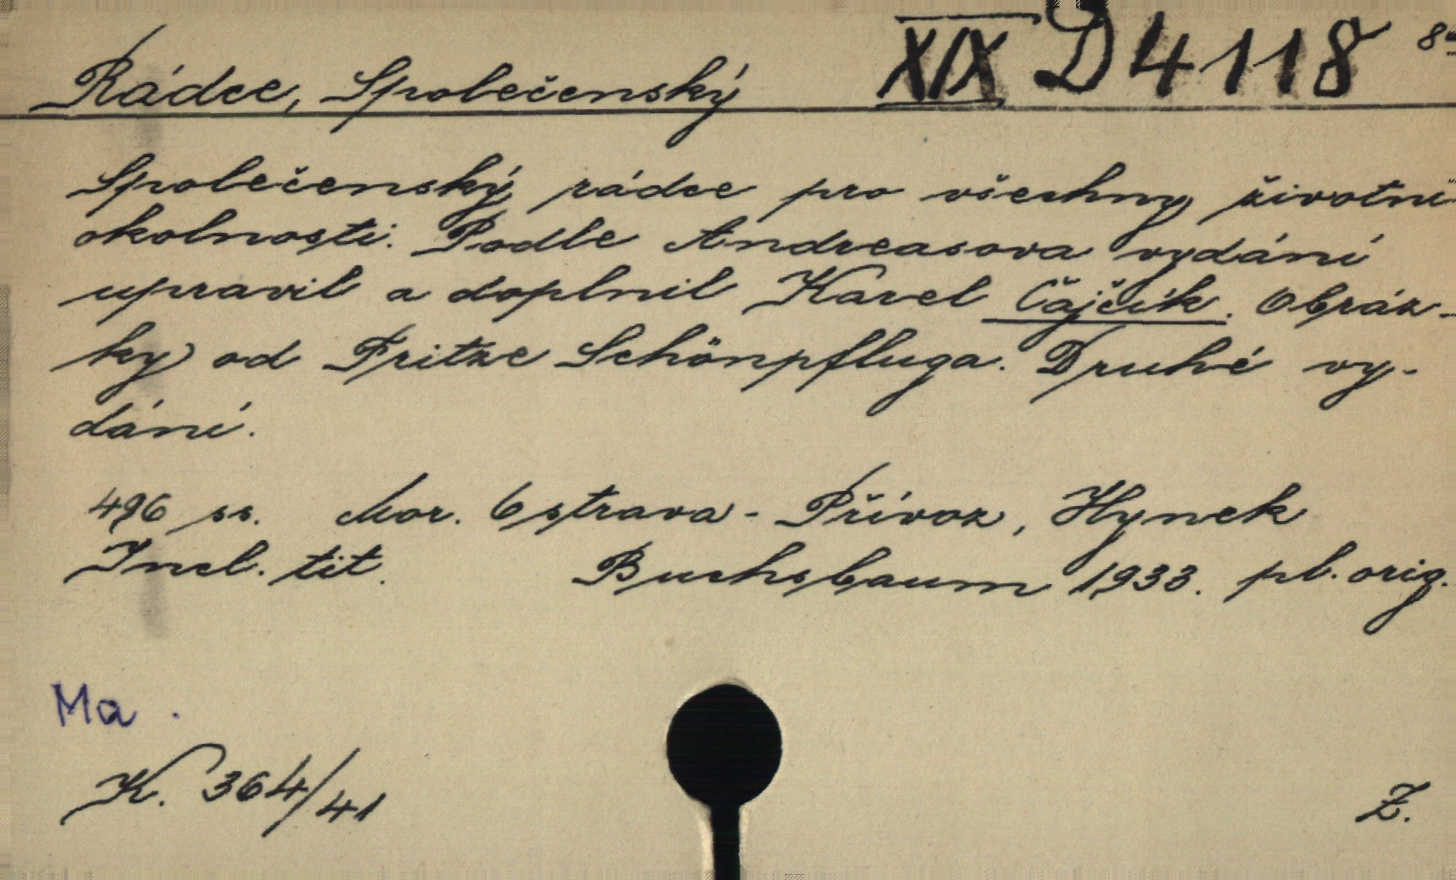 Rádce, Společenský XIX D 4118 8°
Společenský rádce pro všechny životní
okolnosti. Podle Andreasova vydání
upravil a doplnil Karel Čajčík. Obráz-
ky od Fritze Schönpfluga. Druhé vy-
dání.
496 ss. Mor. Ostrava - Přívoz, Hynek
Incl. tit. Buchsbaum 1933. pl. orig.
Ma.
K. 364/41
Z.